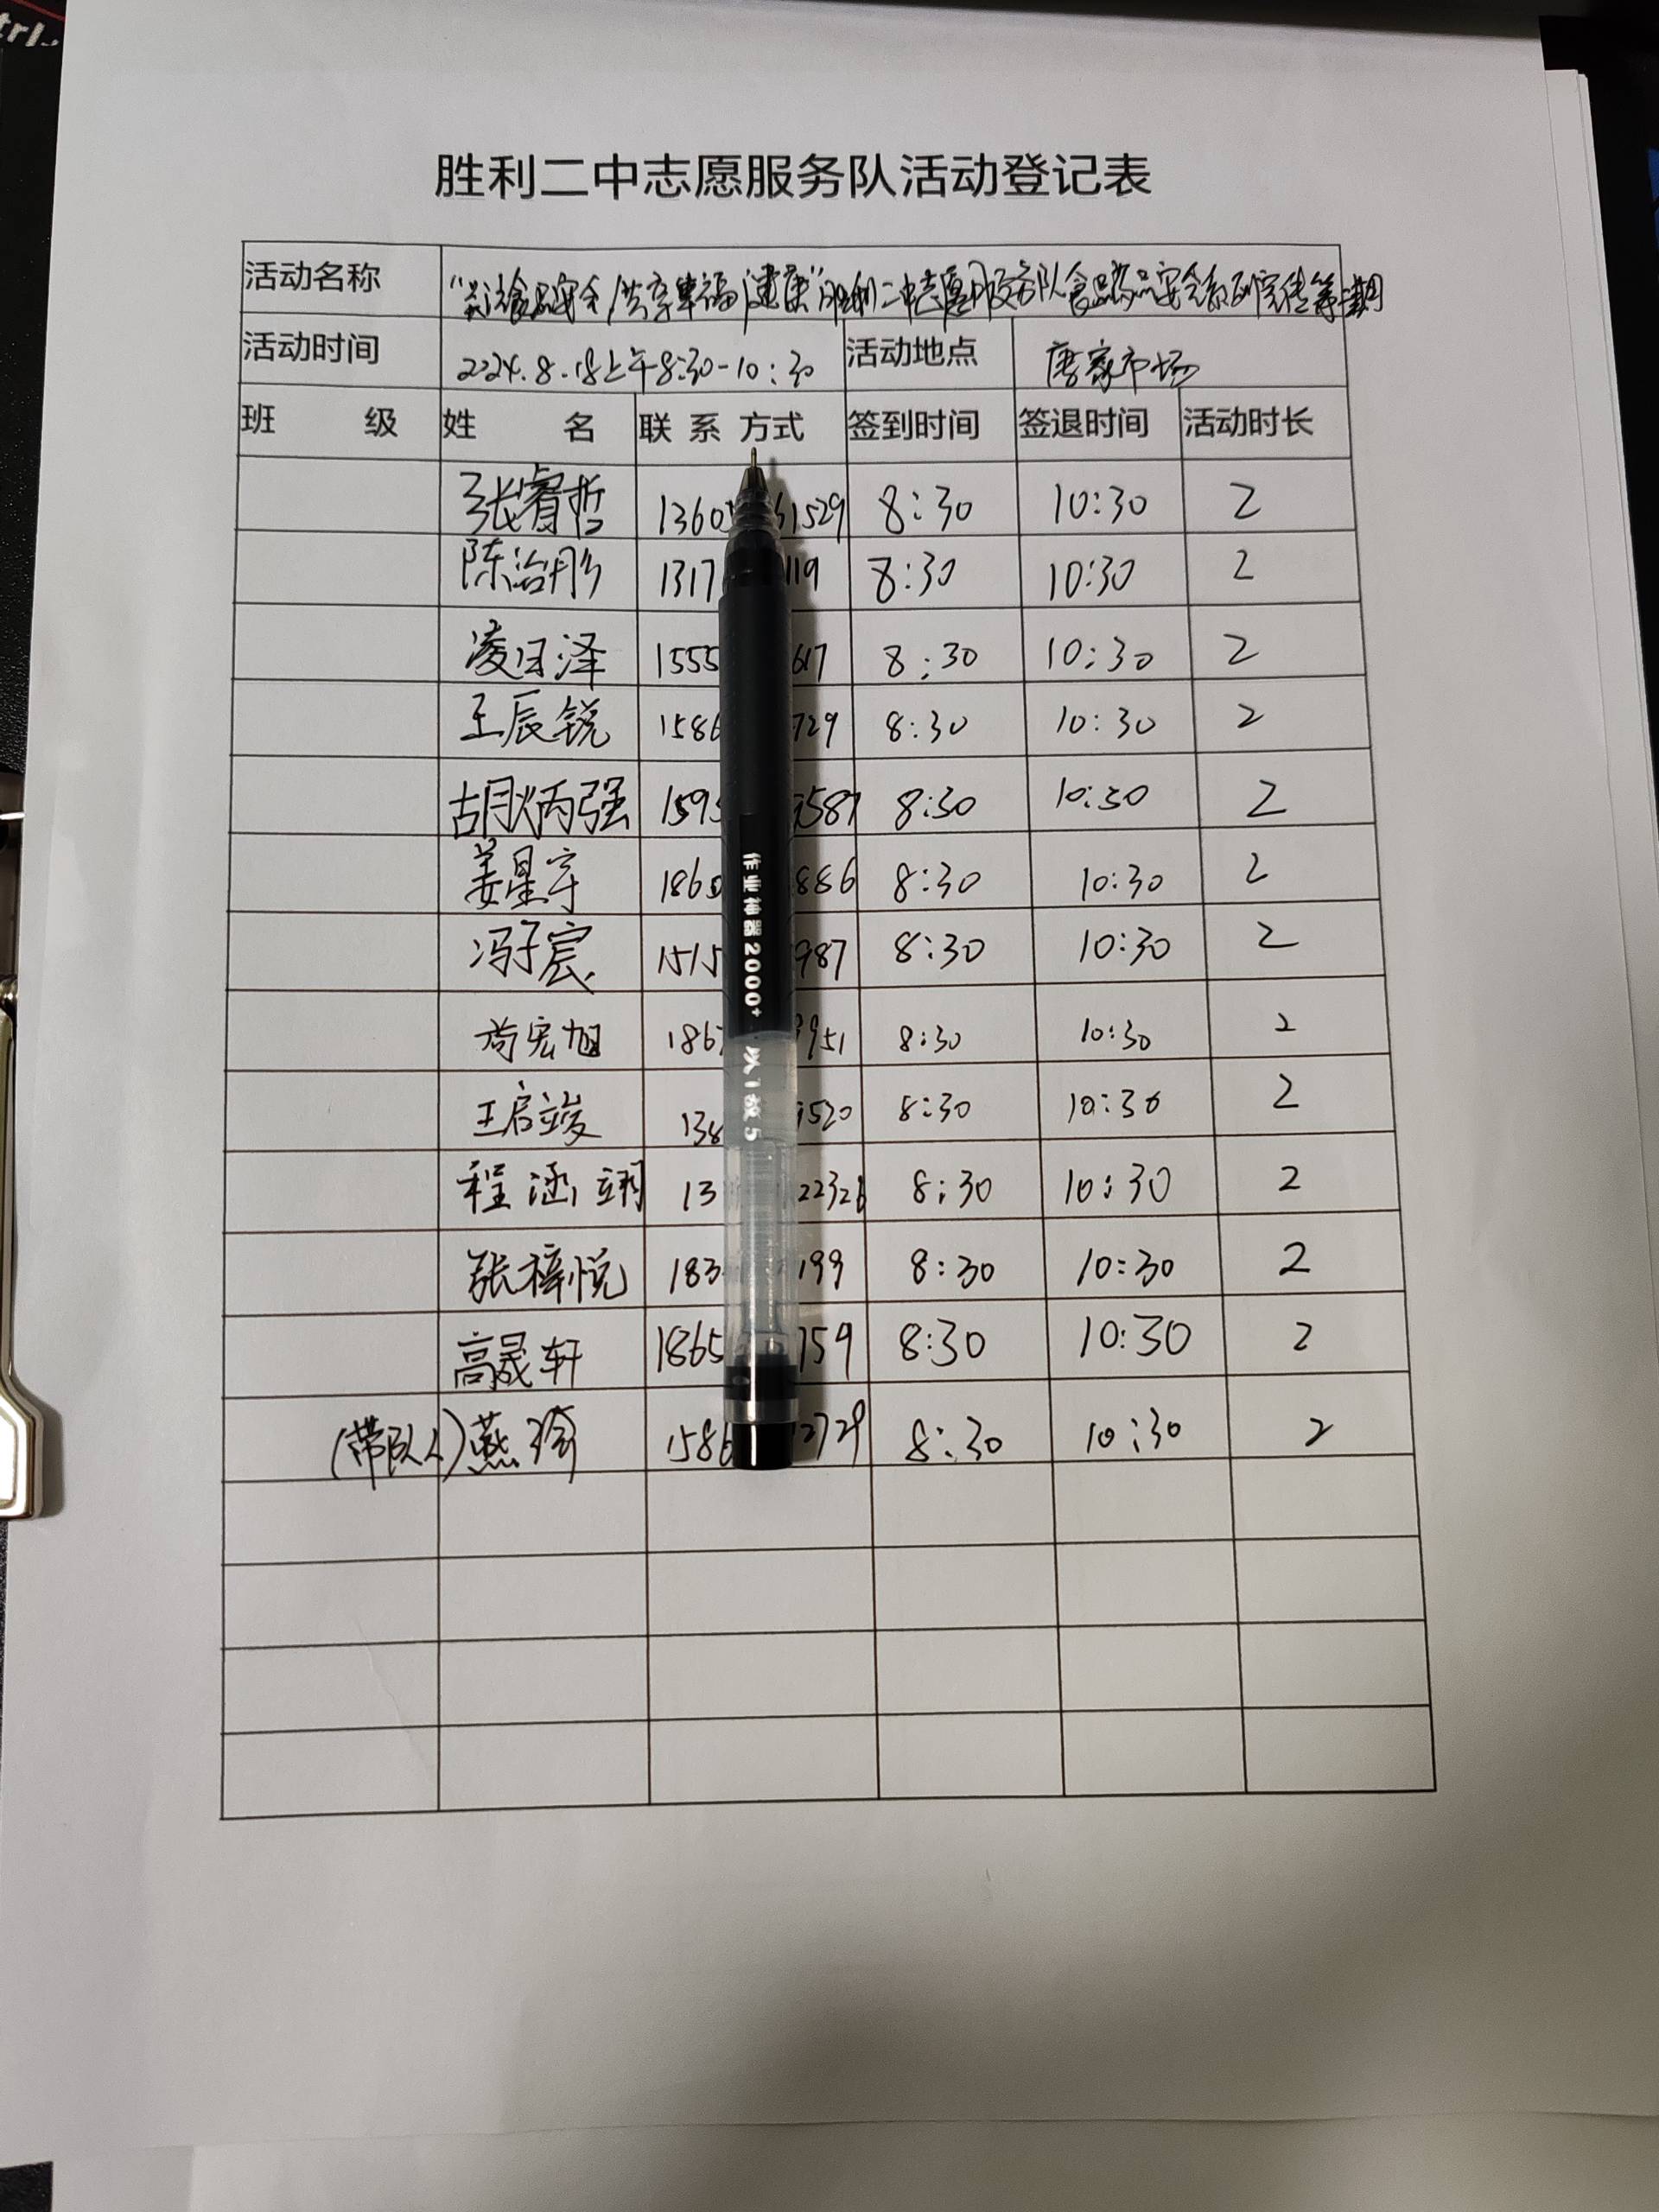 胜利二中志愿服务队活动登记表
活动名称 "关注食品安全,共享幸福健康"胜利二中志愿服务队食品药品安全系列宣传第期
活动时间 2024.8.18上午8:30-10:30 活动地点 唐家市场
班 级 姓 名 联系方式 签到时间 签退时间 活动时长
张睿哲 1360 1529 8:30 10:30 2
陈治彤 1317 119 8:30 10:30 2
凌日泽 1555 617 8:30 10:30 2
王辰锐 1586 729 8:30 10:30 2
胡炳强 1595 587 8:30 10:30 2
姜星宇 1860 886 8:30 10:30 2
冯子宸 1515 987 8:30 10:30 2
尚宏旭 186 951 8:30 10:30 2
王启竣 138 520 8:30 10:30 2
程涵翊 13 22326 8:30 10:30 2
张梓悦 183 199 8:30 10:30 2
高晟轩 1865 759 8:30 10:30 2
(带队人) 燕琦 1586 2729 8:30 10:30 2
作业神器2000+